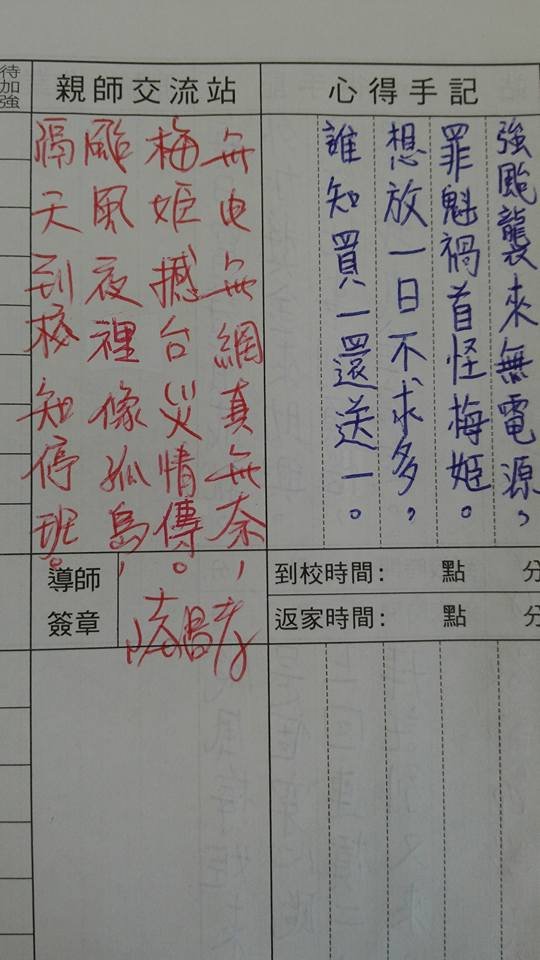 心得手記
強颱襲來無電源，
罪魁禍首怪梅姬。
想放一日不求多，
誰知買一還送一。
親師交流站
無电無網真無奈，
梅姬撼台災情傳。
颱風夜裡像孤島，
隔天到校知停班。
待加強
到校時間： 點 分
返家時間： 點 分
導師
簽章